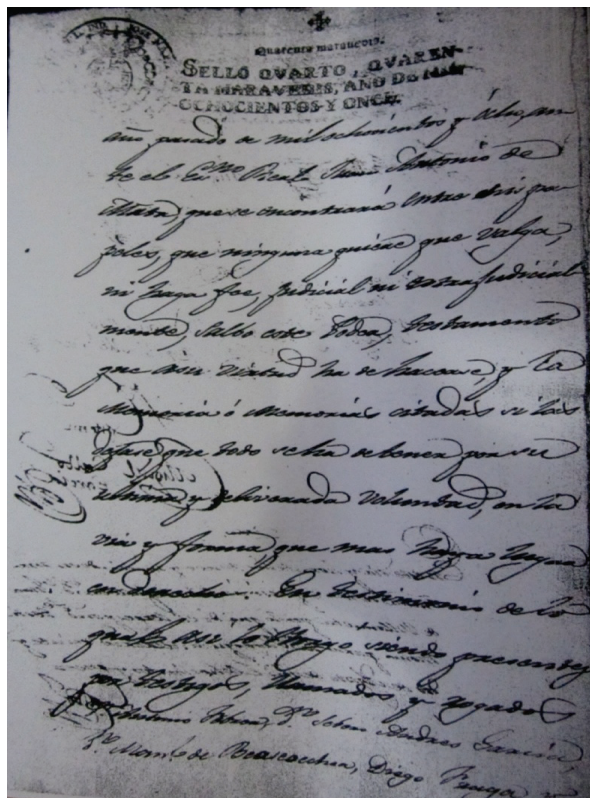 Quarenta maravedis.
SELLO QVARTO, QVAREN-
TA MARAVEDIS, AÑO DE MIL
OCHOCIENTOS Y ONCE.
año pasado de mil ochocientos y ocho, an
te el Es.no Real Juan Antonio de
que se encontrará entre mis pa
peles, que ninguna quiere que valga,
ni haga fee, judicial ni extrajudicial
mente, salbo este Poder, testamento
que en su virtud ha de hacerse, y la
Memoria ó Memorias citadas si las
dejase que todo se ha de tener por su
ultima y deliverada voluntad, en la
via y forma que mas haya lugar
en derecho. En testimonio de lo
qual asi lo otorgo siendo presentes
por testigos, llamados y rogados
Antonio D.n Andres Garcia,
D.n de Beascoechea, Diego